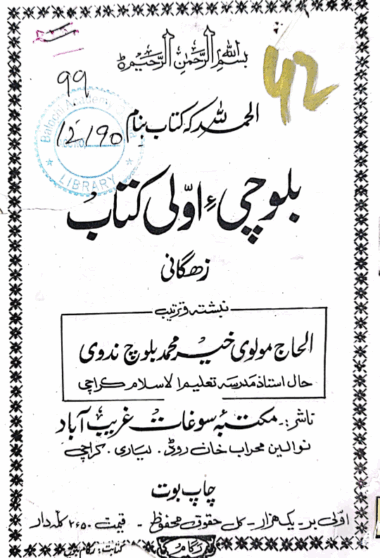 بسم الله الرحمن الرحيم
42
99
12/90
LIBRARY
الحمد للہ کہ کتاب بنام
بلوچیءِ اوّلی کتاب
زھگانی
نبشتہ و ترتیب
الحاج مولوی خیر محمد بلوچ ندوی
حال استاذ مدرسہ تعلیم الاسلام کراچی
ناشر:۔ مکتبہ سوغات غریب آباد
نوالین محراب خان روڈ۔ لیاری۔ کراچی
چاپ بوت
اولی بر۔ یک ھزار۔ کل حقوق محفوظ۔ قیمت ۲٫۵۰ کلدار